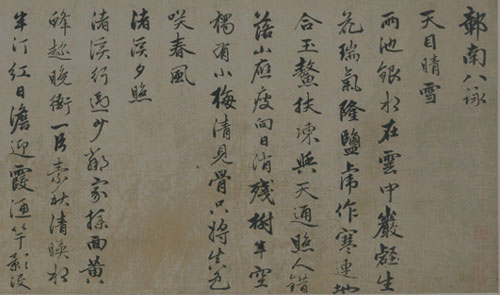 鄣南八詠
天目晴雪
兩池銀水在雲中巖壑生
花瑞氣隆鹽虎作寒連地
合玉鰲扶凍與天通照人錯
落山應瘦向日消殘樹半空
獨有小梅清見骨只將生色
咲春風
渚溪夕照
渚溪行過少家撲面黃
蜂趁晚衙一片素秋清映水
半汀紅日澹迎霞漁竿影没